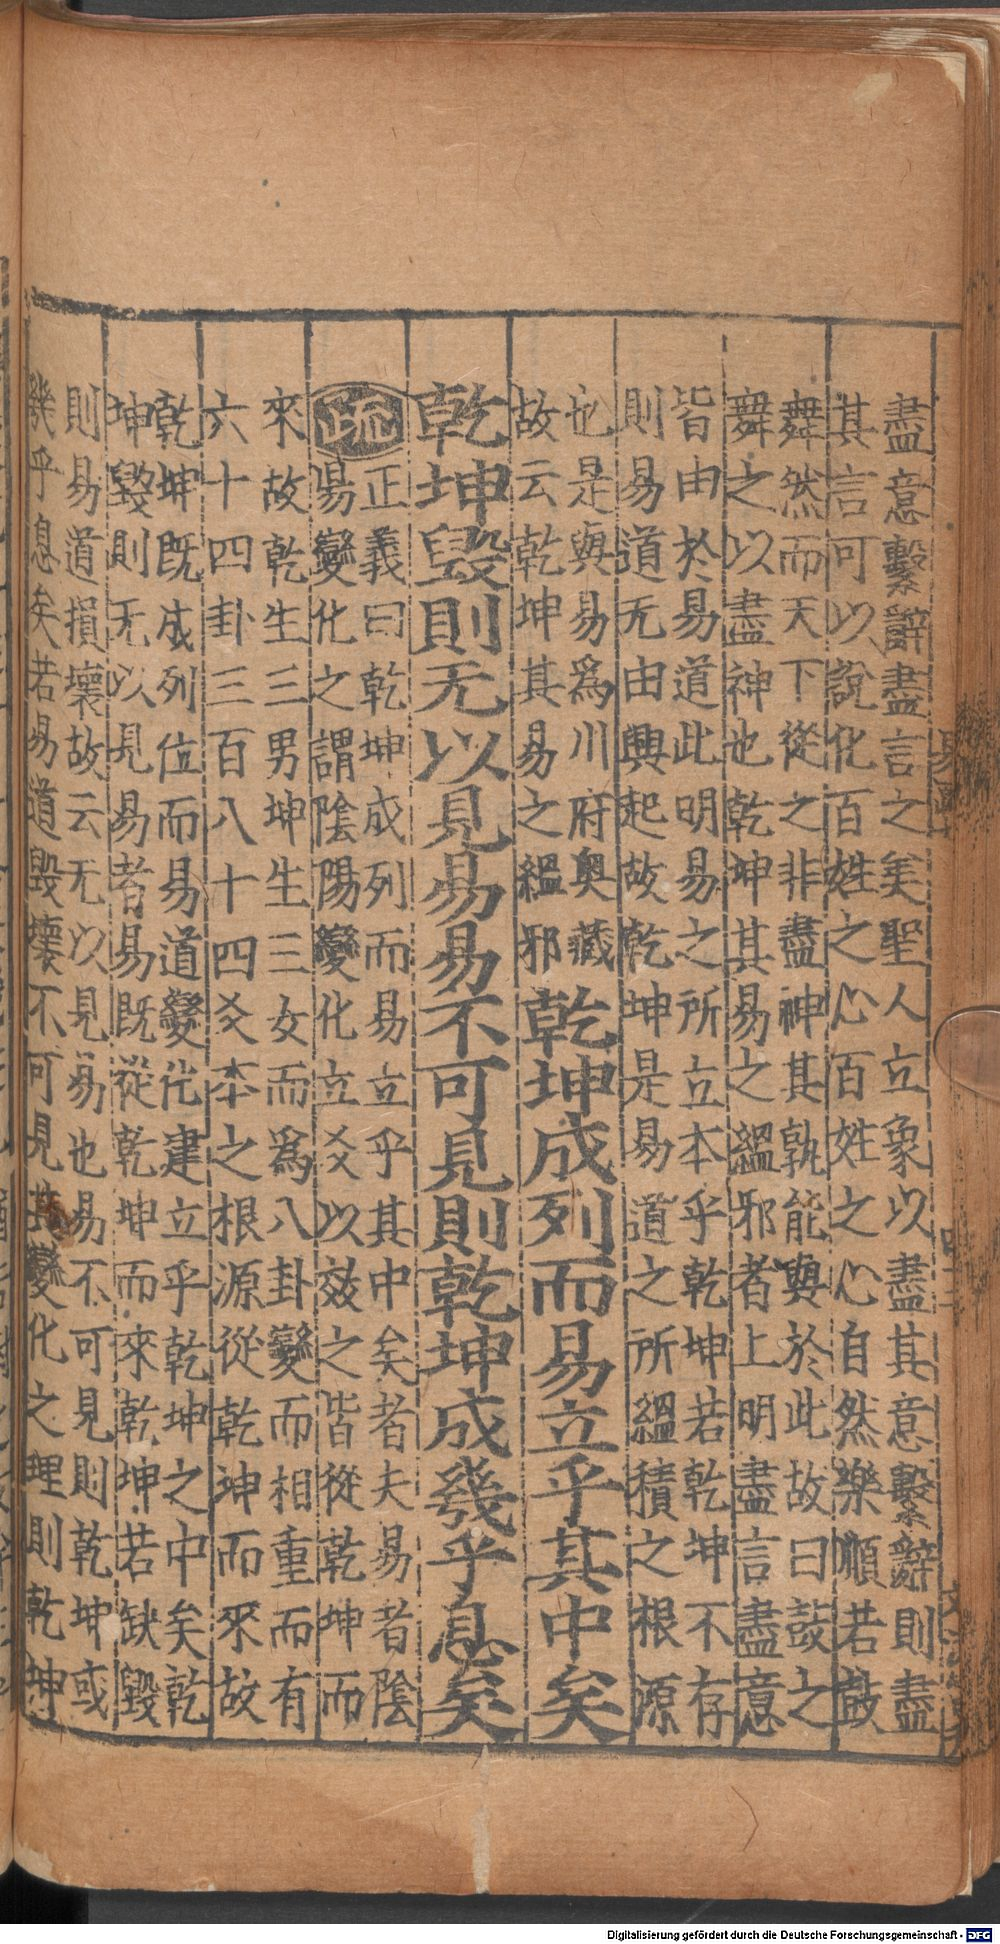 盡意繫辭盡言之矣聖人立象以盡其意繫辭則盡
其言可以說化百姓之心百姓之心自然樂順若鼓
舞然而天下從之非盡神其孰能與於此故曰鼓之
舞之以盡神也乾坤其易之縕邪者上明盡言盡意
皆由於易道此明易之所立本乎乾坤若乾坤不存
則易道无由興起故乾坤是易道之所縕積之根源
也是與易爲川府奧藏
故云乾坤其易之縕邪
乾坤成列而易立乎其中矣
乾坤毀則无以見易易不可見則乾坤成幾乎息矣
疏
正義曰乾坤成列而易立乎其中矣者夫易者陰
陽變化之謂陰陽變化立爻以效之皆從乾坤而
來故乾生三男坤生三女而爲八卦變而相重而有
六十四卦三百八十四爻本之根源從乾坤而來故
乾坤既成列位而易道變化建立乎乾坤之中矣乾
坤毀則无以見易者易既從乾坤而來乾坤若缺毀
則易道損壞故云无以見易也易不可見則乾坤或
幾乎息矣若易道毀壞不可見其變化之理則乾坤
Digitalisierung gefördert durch die Deutsche Forschungsgemeinschaft - DFG